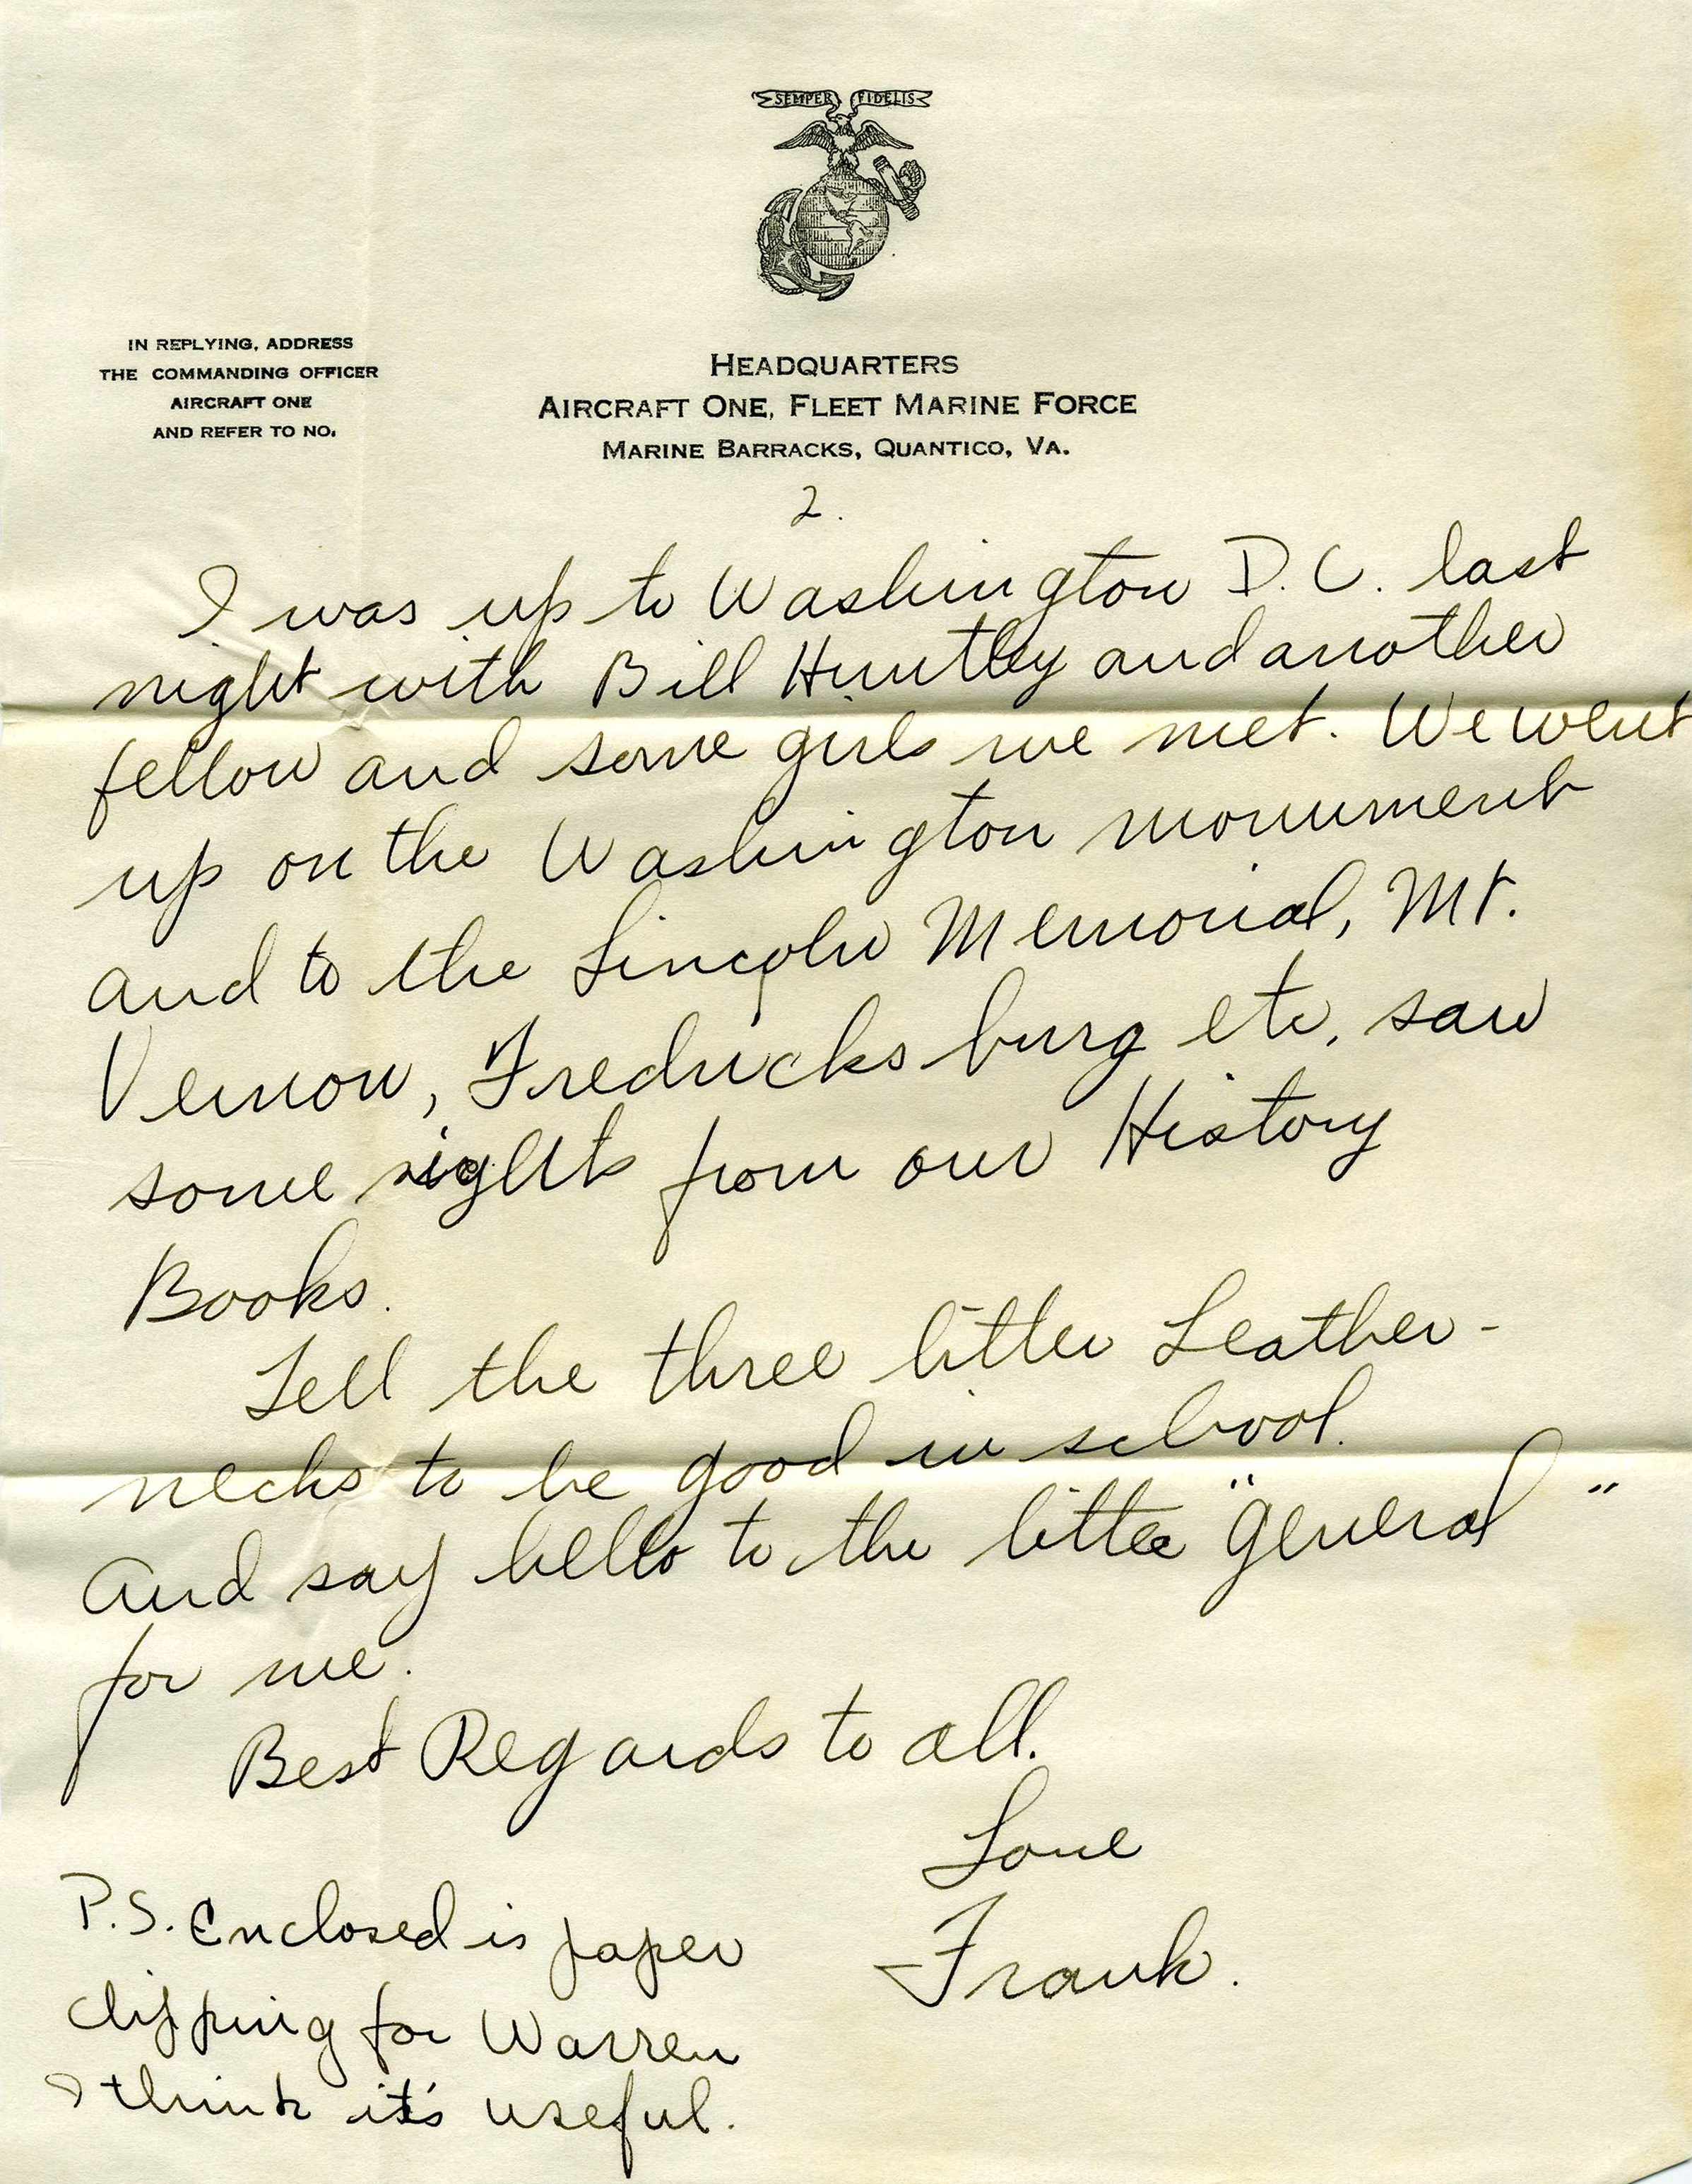 SEMPER FIDELIS
IN REPLYING, ADDRESS
THE COMMANDING OFFICER
AIRCRAFT ONE
AND REFER TO NO.
HEADQUARTERS
AIRCRAFT ONE, FLEET MARINE FORCE
MARINE BARRACKS, QUANTICO, VA.
2.
I was up to Washington D.C. last
night with Bill Huntley and another
fellow and some girls we met. We went
up on the Washington monument
and to the Lincoln Memorial, Mt.
Vernon, Fredricksburg etc, saw
some sights from our History
Books.
Tell the three little Leather-
necks to be good in school.
And say hello to the little "general"
for me.
Best Regards to all.
Love
Frank.
P.S. Enclosed is paper
clipping for Warren
I think it's useful.